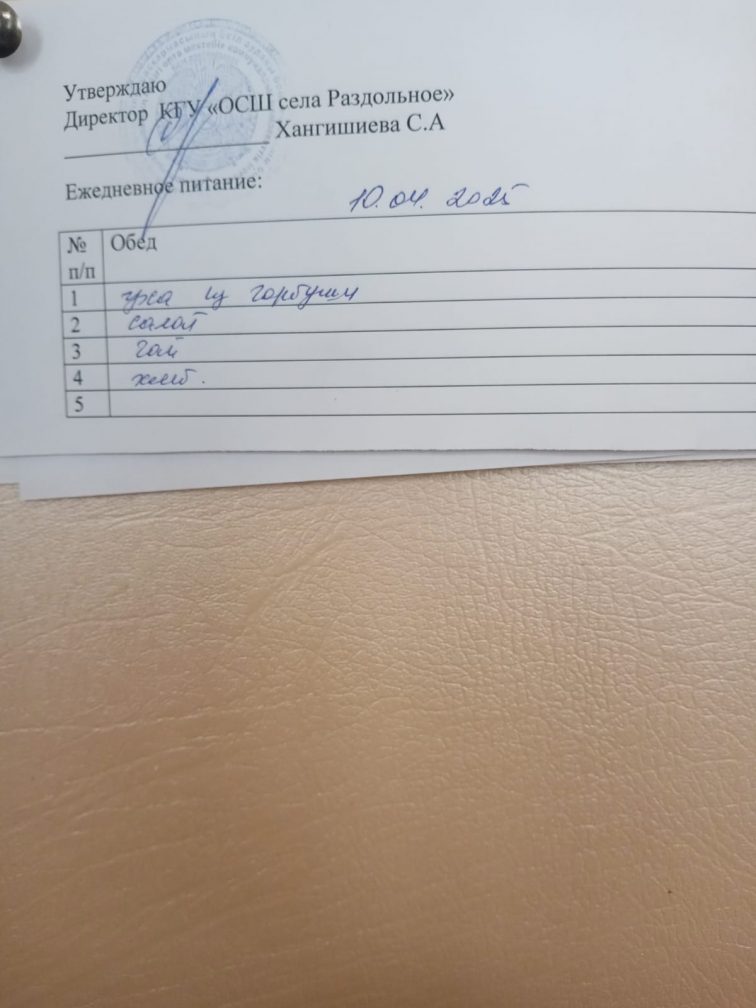 Утверждаю
Директор КГУ «ОСШ села Раздольное»
Хангишиева С.А
Ежедневное питание:
10.04.2025
№ п/п Обед
1 уха из горбуши
2 салат
3 чай
4 хлеб.
5